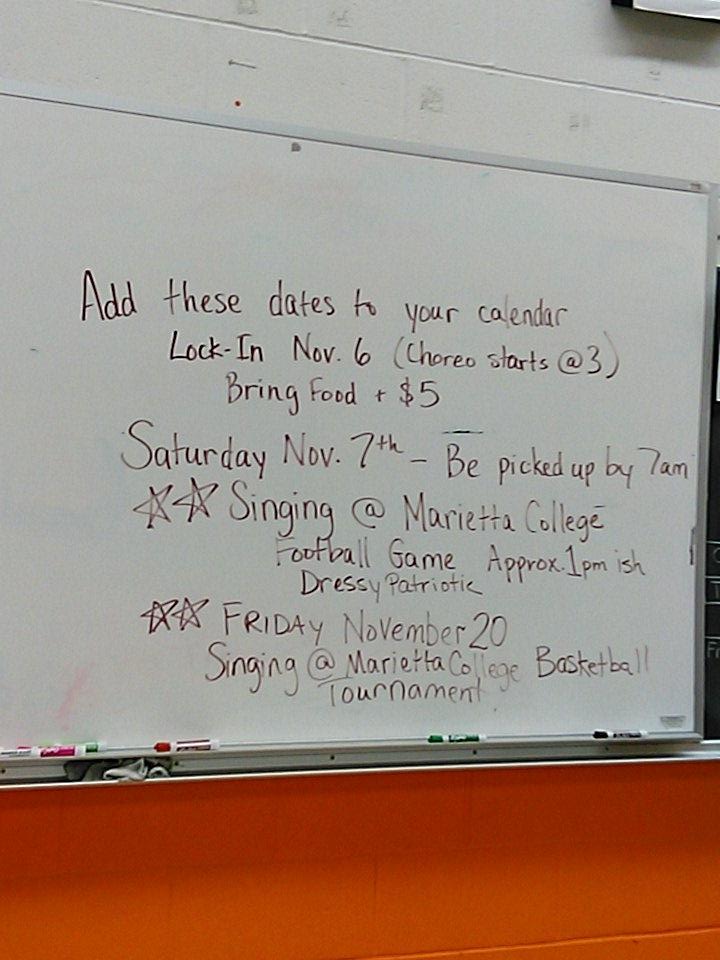 Add these dates to your calendar
Lock-In Nov. 6 (Choreo starts @3)
Bring Food + $5
Saturday Nov. 7th - Be picked up by 7am
☆☆ Singing @ Marietta College
Football Game Approx. 1pm ish
Dressy Patriotic
☆☆ FRIDAY November 20
Singing @ Marietta College Basketball
Tournament.